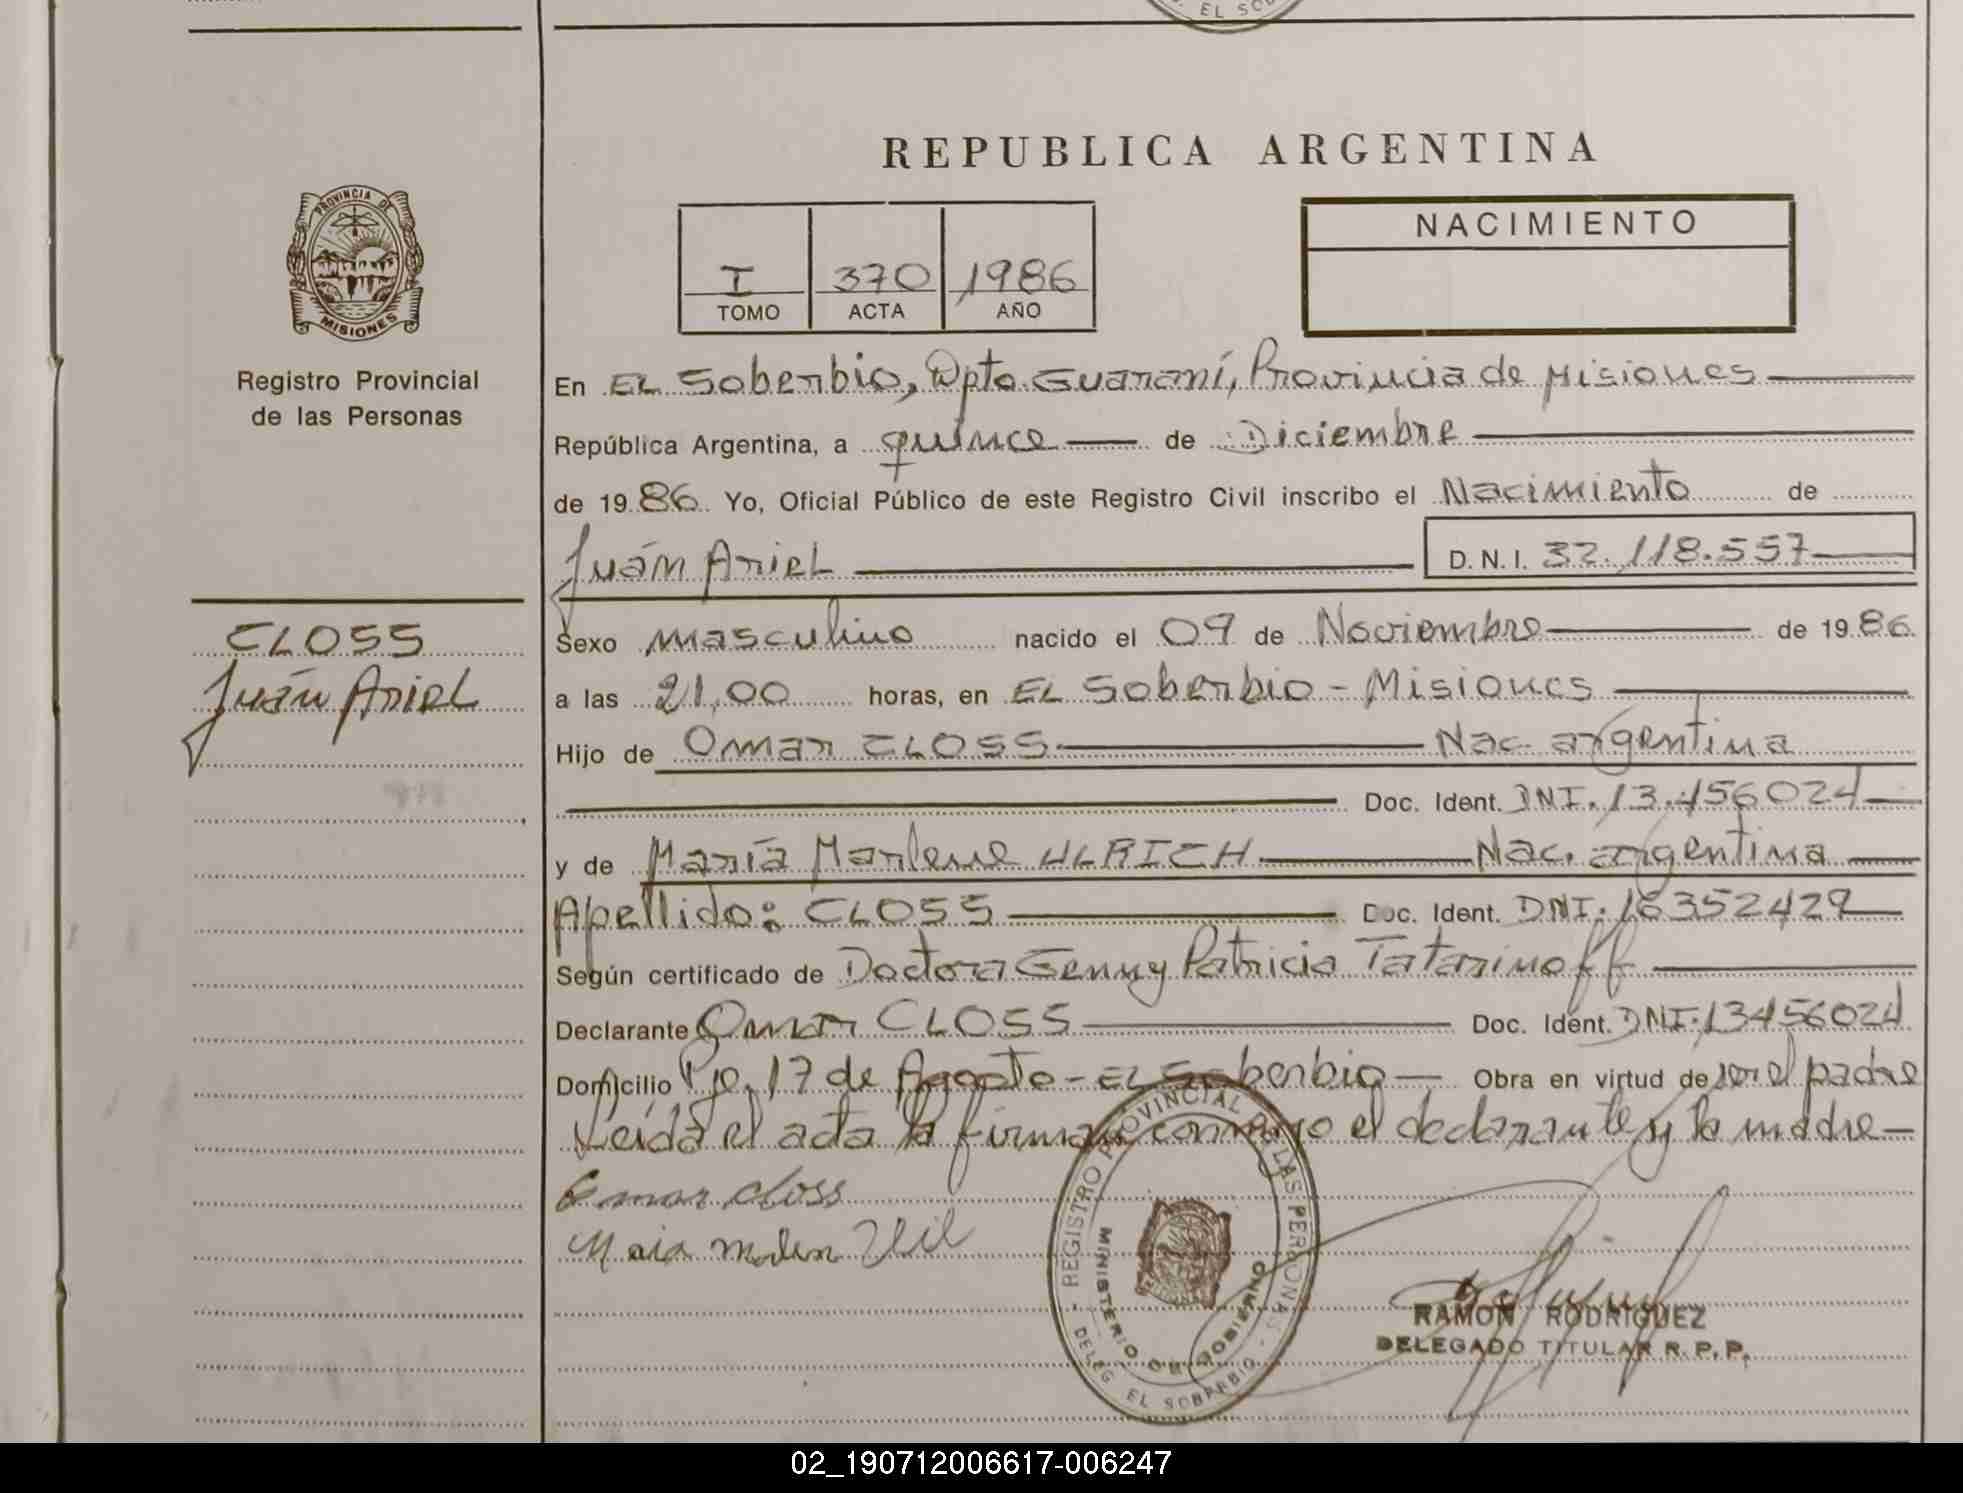 EL SOB
REPUBLICA ARGENTINA
PROVINCIA DE
MISIONES
Registro Provincial
de las Personas
NACIMIENTO
I 370 1986
TOMO ACTA AÑO
En EL Soberbio, Dpto. Guaraní, Provincia de Misiones
República Argentina, a quince de Diciembre
de 1986. Yo, Oficial Público de este Registro Civil inscribo el Nacimiento de
Juán Ariel D.N.I. 32.118.557
CLOSS
Juán Ariel
Sexo masculino nacido el 09 de Noviembre de 1986
a las 21,00 horas, en EL Soberbio - Misiones
Hijo de Omar CLOSS Nac. argentina
Doc. Ident. DNI. 13.456024
y de María Marlene ULRICH Nac. argentina
Apellido: CLOSS Doc. Ident. DNI. 16352429
Según certificado de Doctora Genny Patricia Tatarinoff
Declarante Omar CLOSS Doc. Ident. DNI. 13456024
Domicilio Pje. 17 de Agosto - EL Soberbio Obra en virtud de ser el padre
Leída el acta la firman conmigo el declarante y la madre
Omar Closs
REGISTRO PROVINCIAL DE LAS PERSONAS
MINISTERIO DE GOBIERNO
DELEG. EL SOBERBIO
RAMON RODRIGUEZ
DELEGADO TITULAR R. P. P.
02_190712006617-006247